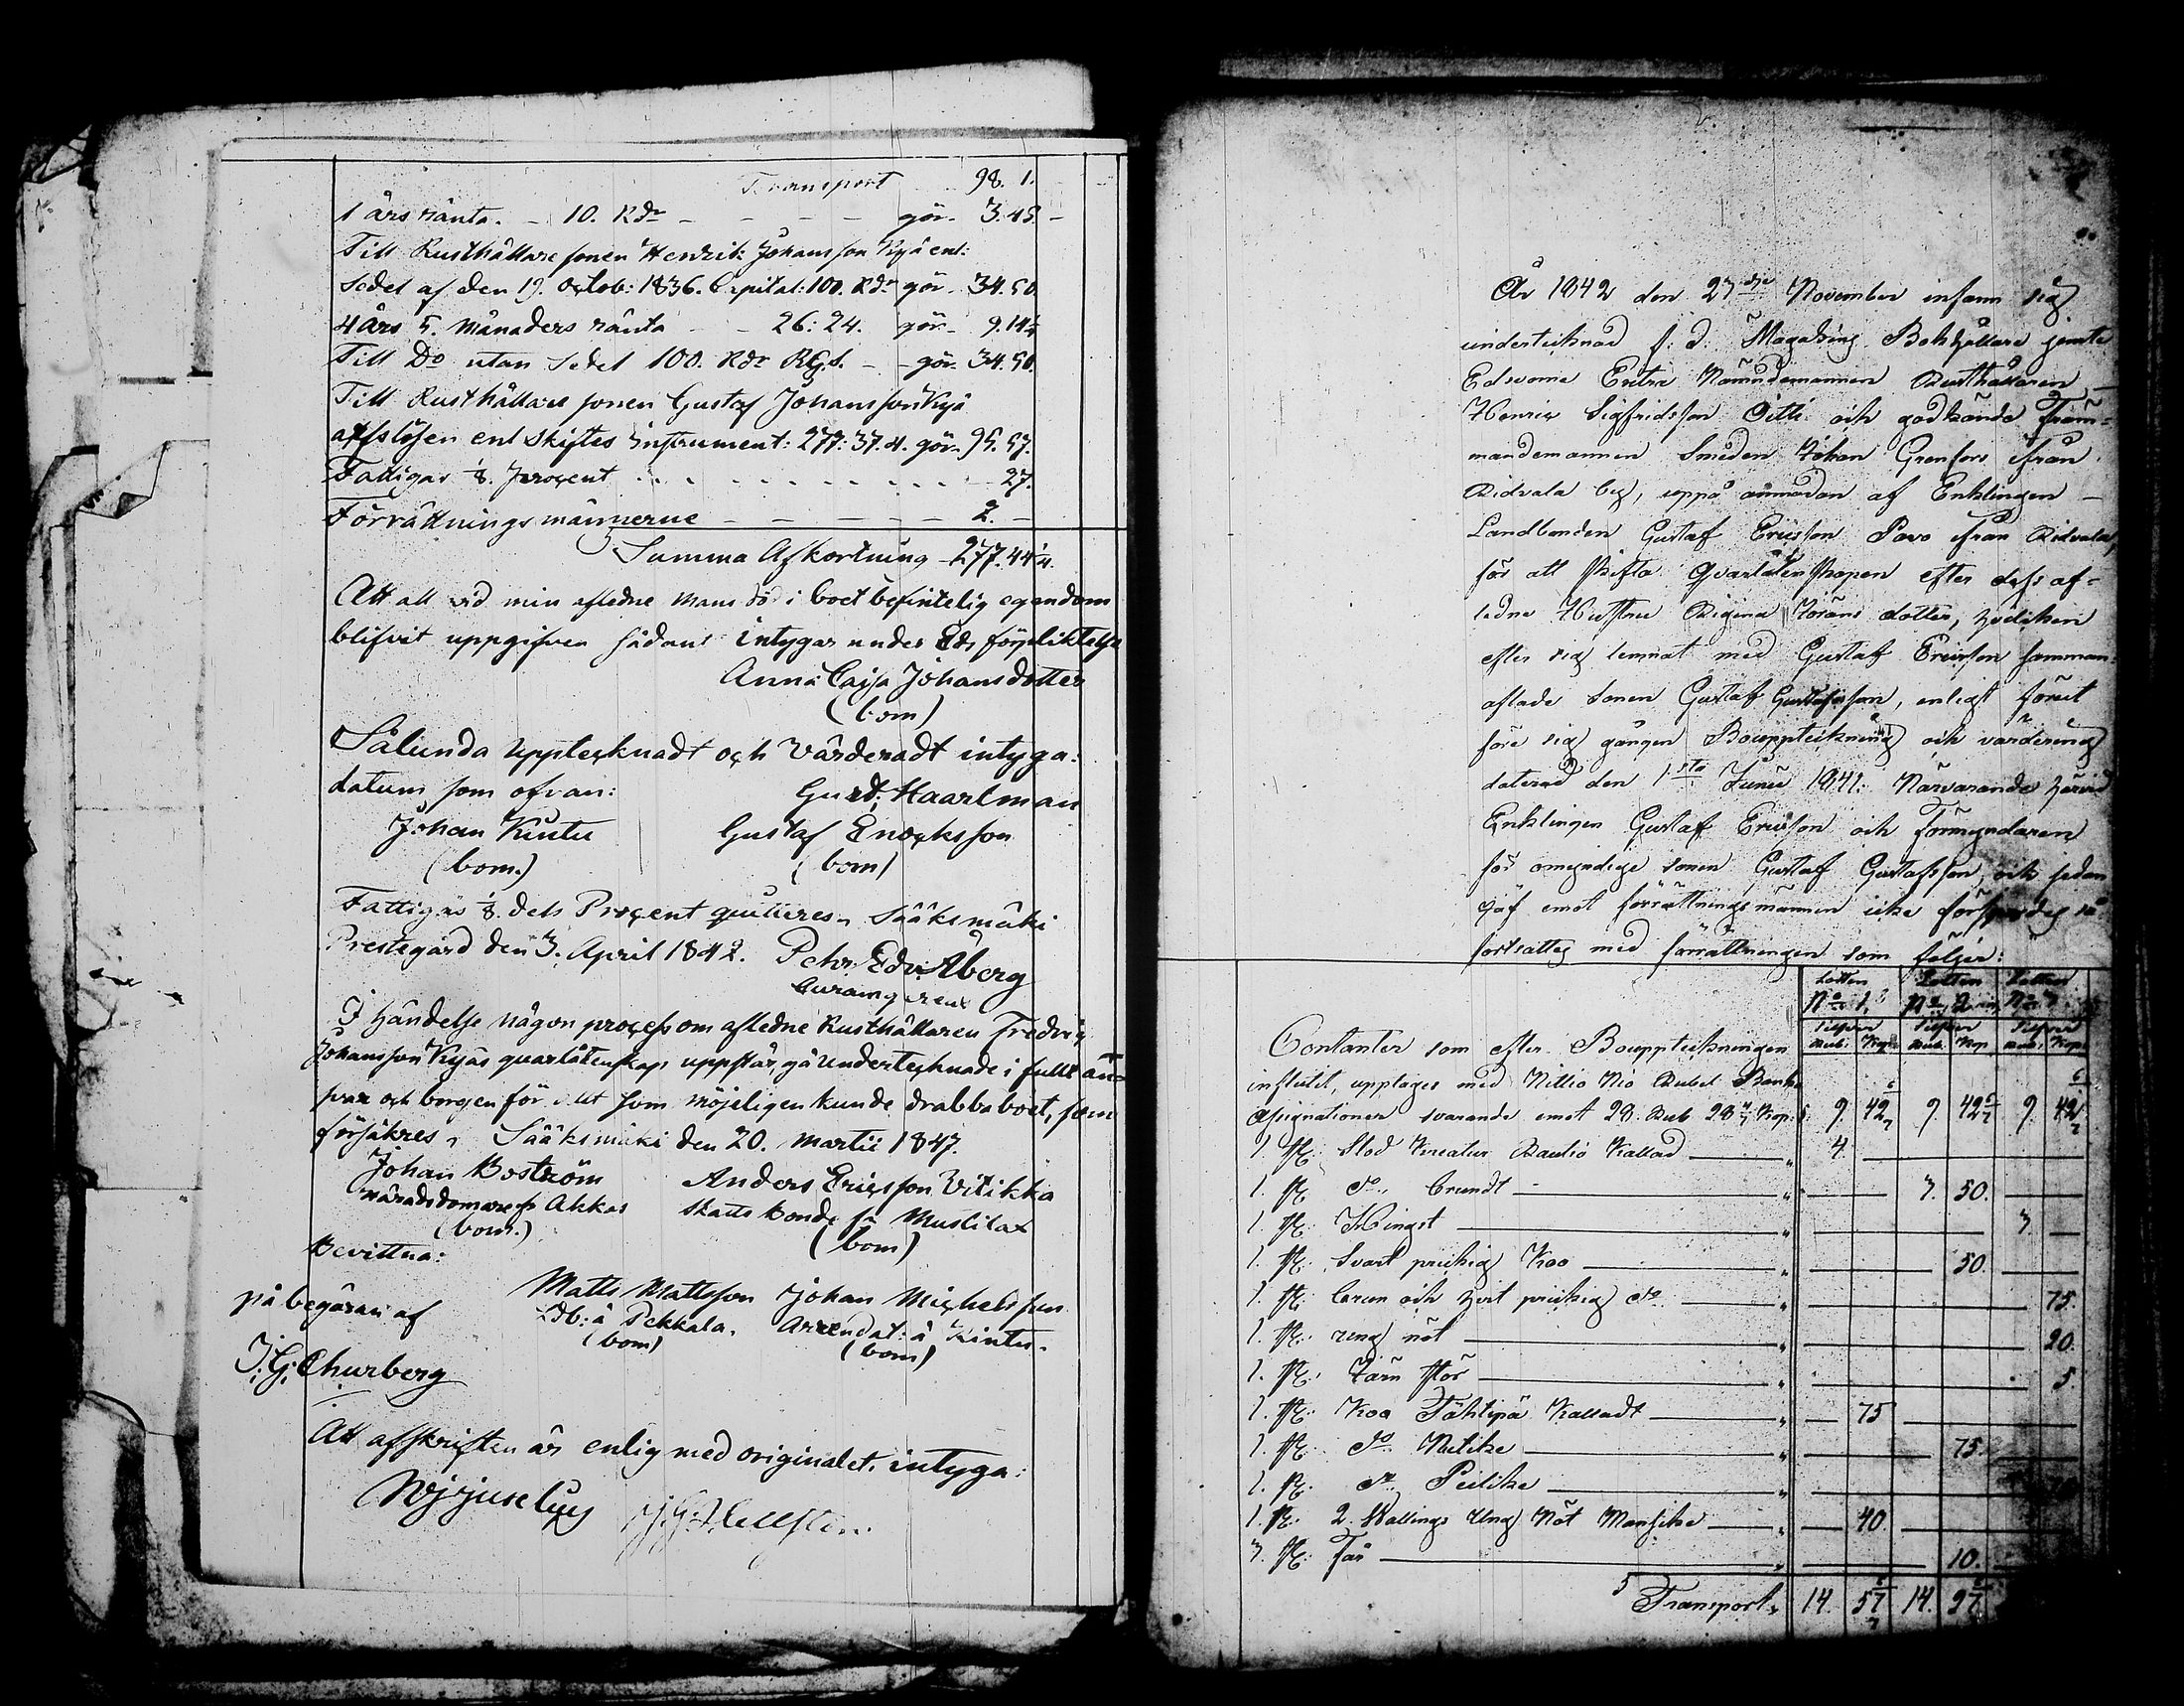 Transport 98. 1.
1 års ränta. – 10. Rdr – – – – gör. 3.45. –
Till Rusthållare sonen Henrik Johansson Kyä enl:
sedel af den 19. Octob: 1836. Capital: 100. Rdr gör. 34.50.
4 års 5. månaders ränta – 26: 24. gör. 9.14¼
Till Do utan sedel 100. Rdr RGs. – gör. 34.50.
Till Rusthållare sonen Gustaf Johansson Kyä
enl skiftes instrument: 277: 37.4. gör. 95.57.
Fattigas ⅛. procent 27.
Förrättningsmännerne – – – – – 2. –
Summa Afkortning 277.44¼.
Att all vid min aflidne mans död i boet befintelig egendom
blifvit uppgifven sådant intygar under Eds förpliktelse
Anna Caisa Johansdotter
(bom)
Sålunda upptecknadt och värderadt intyga:
datum som ofvan: Gust. Haartman
Johan Kintu Gustaf Enocksson
(bom.) (bom)
Fattigas ⅛. dels Procent quitteres. Sääksmäki
Prestegård den 3. April 1842. Pehr Edv. Åberg
I händelse någon process om afledne Rusthållaren Fredric
Johansson Kyäs quarlåtenskap uppstår, gå undertecknade i fullt an-
svar och borgen för det som möjeligen kunde drabba boet, som
försäkres. Sääksmäki den 20. Martii 1847.
Johan Boström Anders Ericsson Vitikka
Akkas skatte bonde fr Muslilax
(bom.) (bom)
Bevittna:
på begäran af Matts Mattsson Johan Michelsson
å Pekkala. Arrendat: å Kintu.
(bom) (bom)
J. G. Churberg
Att afskriften är enlig med originalet, intyga:
År 1842 den 27de November infann sig
undertecknad f: d: Magasins Bokhållare jemte
Edsvorne Extra Nämndemannen Rusthållaren –
Henric Sigfridsson Ditti och godkände Främ-
mandemannen Smeden Johan Grenfors ifrån
Ridvala by, uppå anmodan af Enklingen –
Landbonden Gustaf Ericsson Pavo ifrån Ridvala,
för att skifta Qvarlåtenskapen efter dess af-
ledne Hustru Regina Görans dotter, hvilken
efter sig lemnat med Gustaf Ericsson samman-
aflade sonen Gustaf Gustafsson, enligt förut
före sig gången Bouppteckning och värdering
daterad den 1sta Junii 1841: Närvarande härvid
Enklingen Gustaf Ericsson och Förmyndaren
för omyndige sonen Gustaf Gustafsson, och sedan
jäf emot förrättningsmännen icke försports så
fortsattes med förrättningen som följer:
Lotten No 1. Lotten No 2. Lotten No 3.
Silfver Silfver Silfver
Rub: Kop. Rub. Kop. Rub: Kop.
Contanter som efter Bouppteckningen
influtit, upptages med Nittio Nio Rubel Banko
Assignationer svarande emot 28. Rub 28 4/7 Kop. S. 9. 42 6/7 9. 42 6/7 9. 42 6/7
1. st. Stod Kreatur Rautio Kallad 4.
1. st. do. brundt 3. 50.
1. st. Hingst 3.
1. st. Svart prickig Koo 50.
1. st. brun och hvit prickig do 75.
1. st. ung nöt 20.
1. st. Järn stör 5.
1. st. Koo Tähtipä Kalladt 75
1. st. do. Mutike 75.
1. st. do. Peitike
1. st. 2. Wallings Ung Nöt Mansike 40.
3. st. Får 10.
Transport 14. 57 6/7 14. 97 6/7